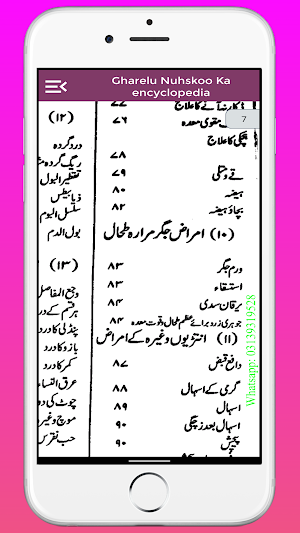 Gharelu Nuhskoo Ka
encyclopedia
7
ڈکار نہ آنے کا علاج ۷۷
مقوی معدہ ۷۶
ہچکی کا علاج
۷۸
قے و متلی ۷۹
ہیضہ ۸۰
بچاؤ ہیضہ ۸۲
(۱۰) امراض جگر مرارہ طحال
ورم جگر ۸۳
استسقاء ۸۳
یرقان سدی ۸۴
جوہری زرد برائے عظم طحال و قوت معدہ ۸۴
(۱۱) انتڑیوں وغیرہ کے امراض
دافع قبض ۸۷
گرمی کے اسہال ۸۸
اسہال ۸۹
اسہال بعد زچگی ۹۰
پیچش ۹۰
(۱۲)
درد گردہ
ریگ گردہ
تقطیر البول
ذیابیطس
سلسل البول
بول الدم
(۱۳)
وجع المفاصل
ہر قسم کے درد
پنڈلی کا درد
بازو کا درد
کمر کا درد
عرق النسا
چوٹ کی
موچ و
حب نقرس
Whatsapp: 03139319528